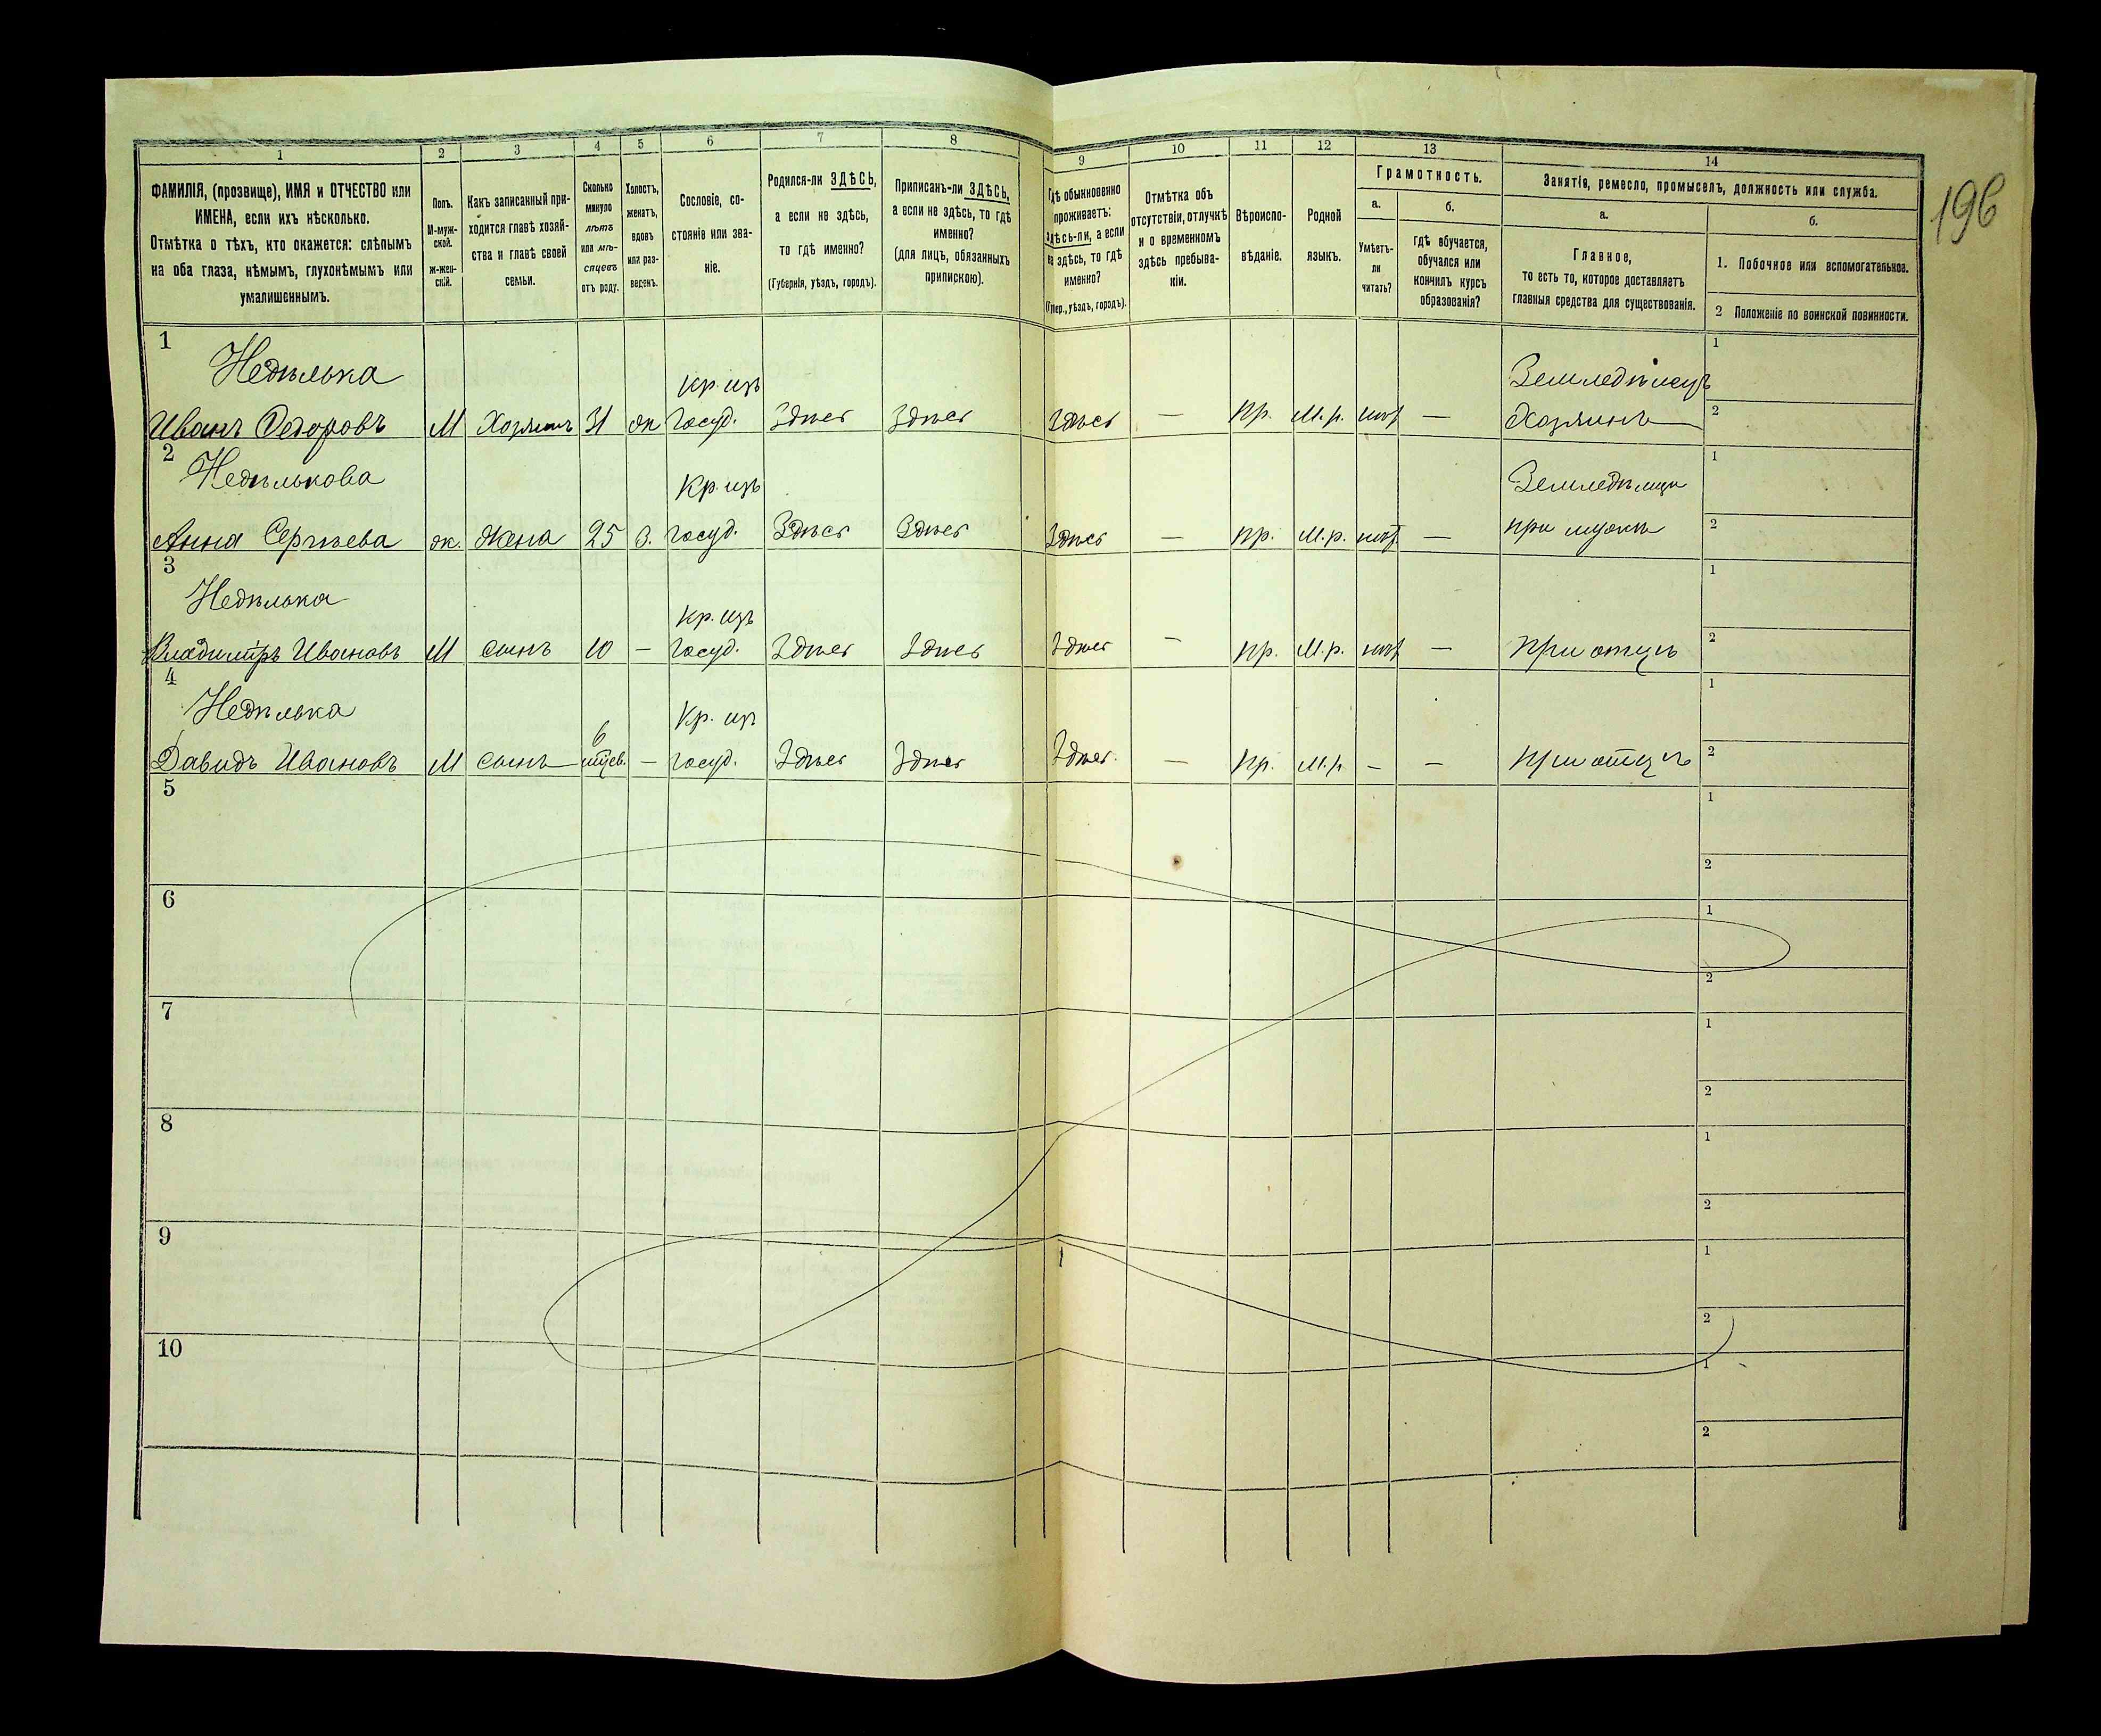 196
1 2 3 4 5 6 7 8 9 10 11 12 13 14
ФАМИЛІЯ, (прозвище), ИМЯ и ОТЧЕСТВО или
ИМЕНА, если ихъ нѣсколько.
Отмѣтка о тѣхъ, кто окажется: слѣпымъ
на оба глаза, нѣмымъ, глухонѣмымъ или
умалишеннымъ.
Полъ.
М-муж-
ской.
ж-жен-
скій.
Какъ записанный при-
ходится главѣ хозяй-
ства и главѣ своей
семьи.
Сколько
минуло
лѣтъ
или мѣ-
сяцевъ
отъ роду.
Холостъ,
женатъ,
вдовъ
или раз-
веденъ.
Сословіе, со-
стояніе или зва-
ніе.
Родился-ли ЗДѢСЬ,
а если не здѣсь,
то гдѣ именно?
(Губернія, уѣздъ, городъ).
Приписанъ-ли ЗДѢСЬ,
а если не здѣсь, то гдѣ
именно?
(для лицъ, обязанныхъ
припискою).
Гдѣ обыкновенно
проживаетъ:
здѣсь-ли, а если
не здѣсь, то гдѣ
именно?
(Губер., уѣздъ, городъ).
Отмѣтка объ
отсутствіи, отлучкѣ
и о временномъ
здѣсь пребыва-
ніи.
Вѣроиспо-
вѣданіе.
Родной
языкъ.
Грамотность.
а.
Умѣетъ-
ли
читать?
б.
гдѣ обучается,
обучался или
кончилъ курсъ
образованія?
Занятіе, ремесло, промыселъ, должность или служба.
а.
Главное,
то есть то, которое доставляетъ
главныя средства для существованія.
б.
1. Побочное или вспомогательное.
2 Положеніе по воинской повинности.
1
Недѣлька Кр. изъ Земледѣлецъ 1
Иванъ Ѳедоровъ М Хозяинъ 31 ж Госуд. Здѣсь Здѣсь Здѣсь — Пр. М.р. нѣт — Хозяинъ 2
2
Недѣлькова Кр. изъ Земледѣлица 1
Анна Сергѣева ж. Жена 25 З. Госуд. Здѣсь Здѣсь Здѣсь — Пр. М.р. нѣт — при мужѣ 2
3
Недѣлька Кр. изъ 1
Владимiръ Ивановъ М сынъ 10 — Госуд. Здѣсь Здѣсь Здѣсь — Пр. М.р. нѣт — При отцѣ 2
4
Недѣлька 6 Кр. из 1
Давидъ Ивановъ М сынъ мѣсяц. — Госуд. Здѣсь Здѣсь Здѣсь. — Пр. М.р — — При отцѣ 2
5 1
2
6 1
2
7 1
2
8 1
2
9 1
2
10 1
2